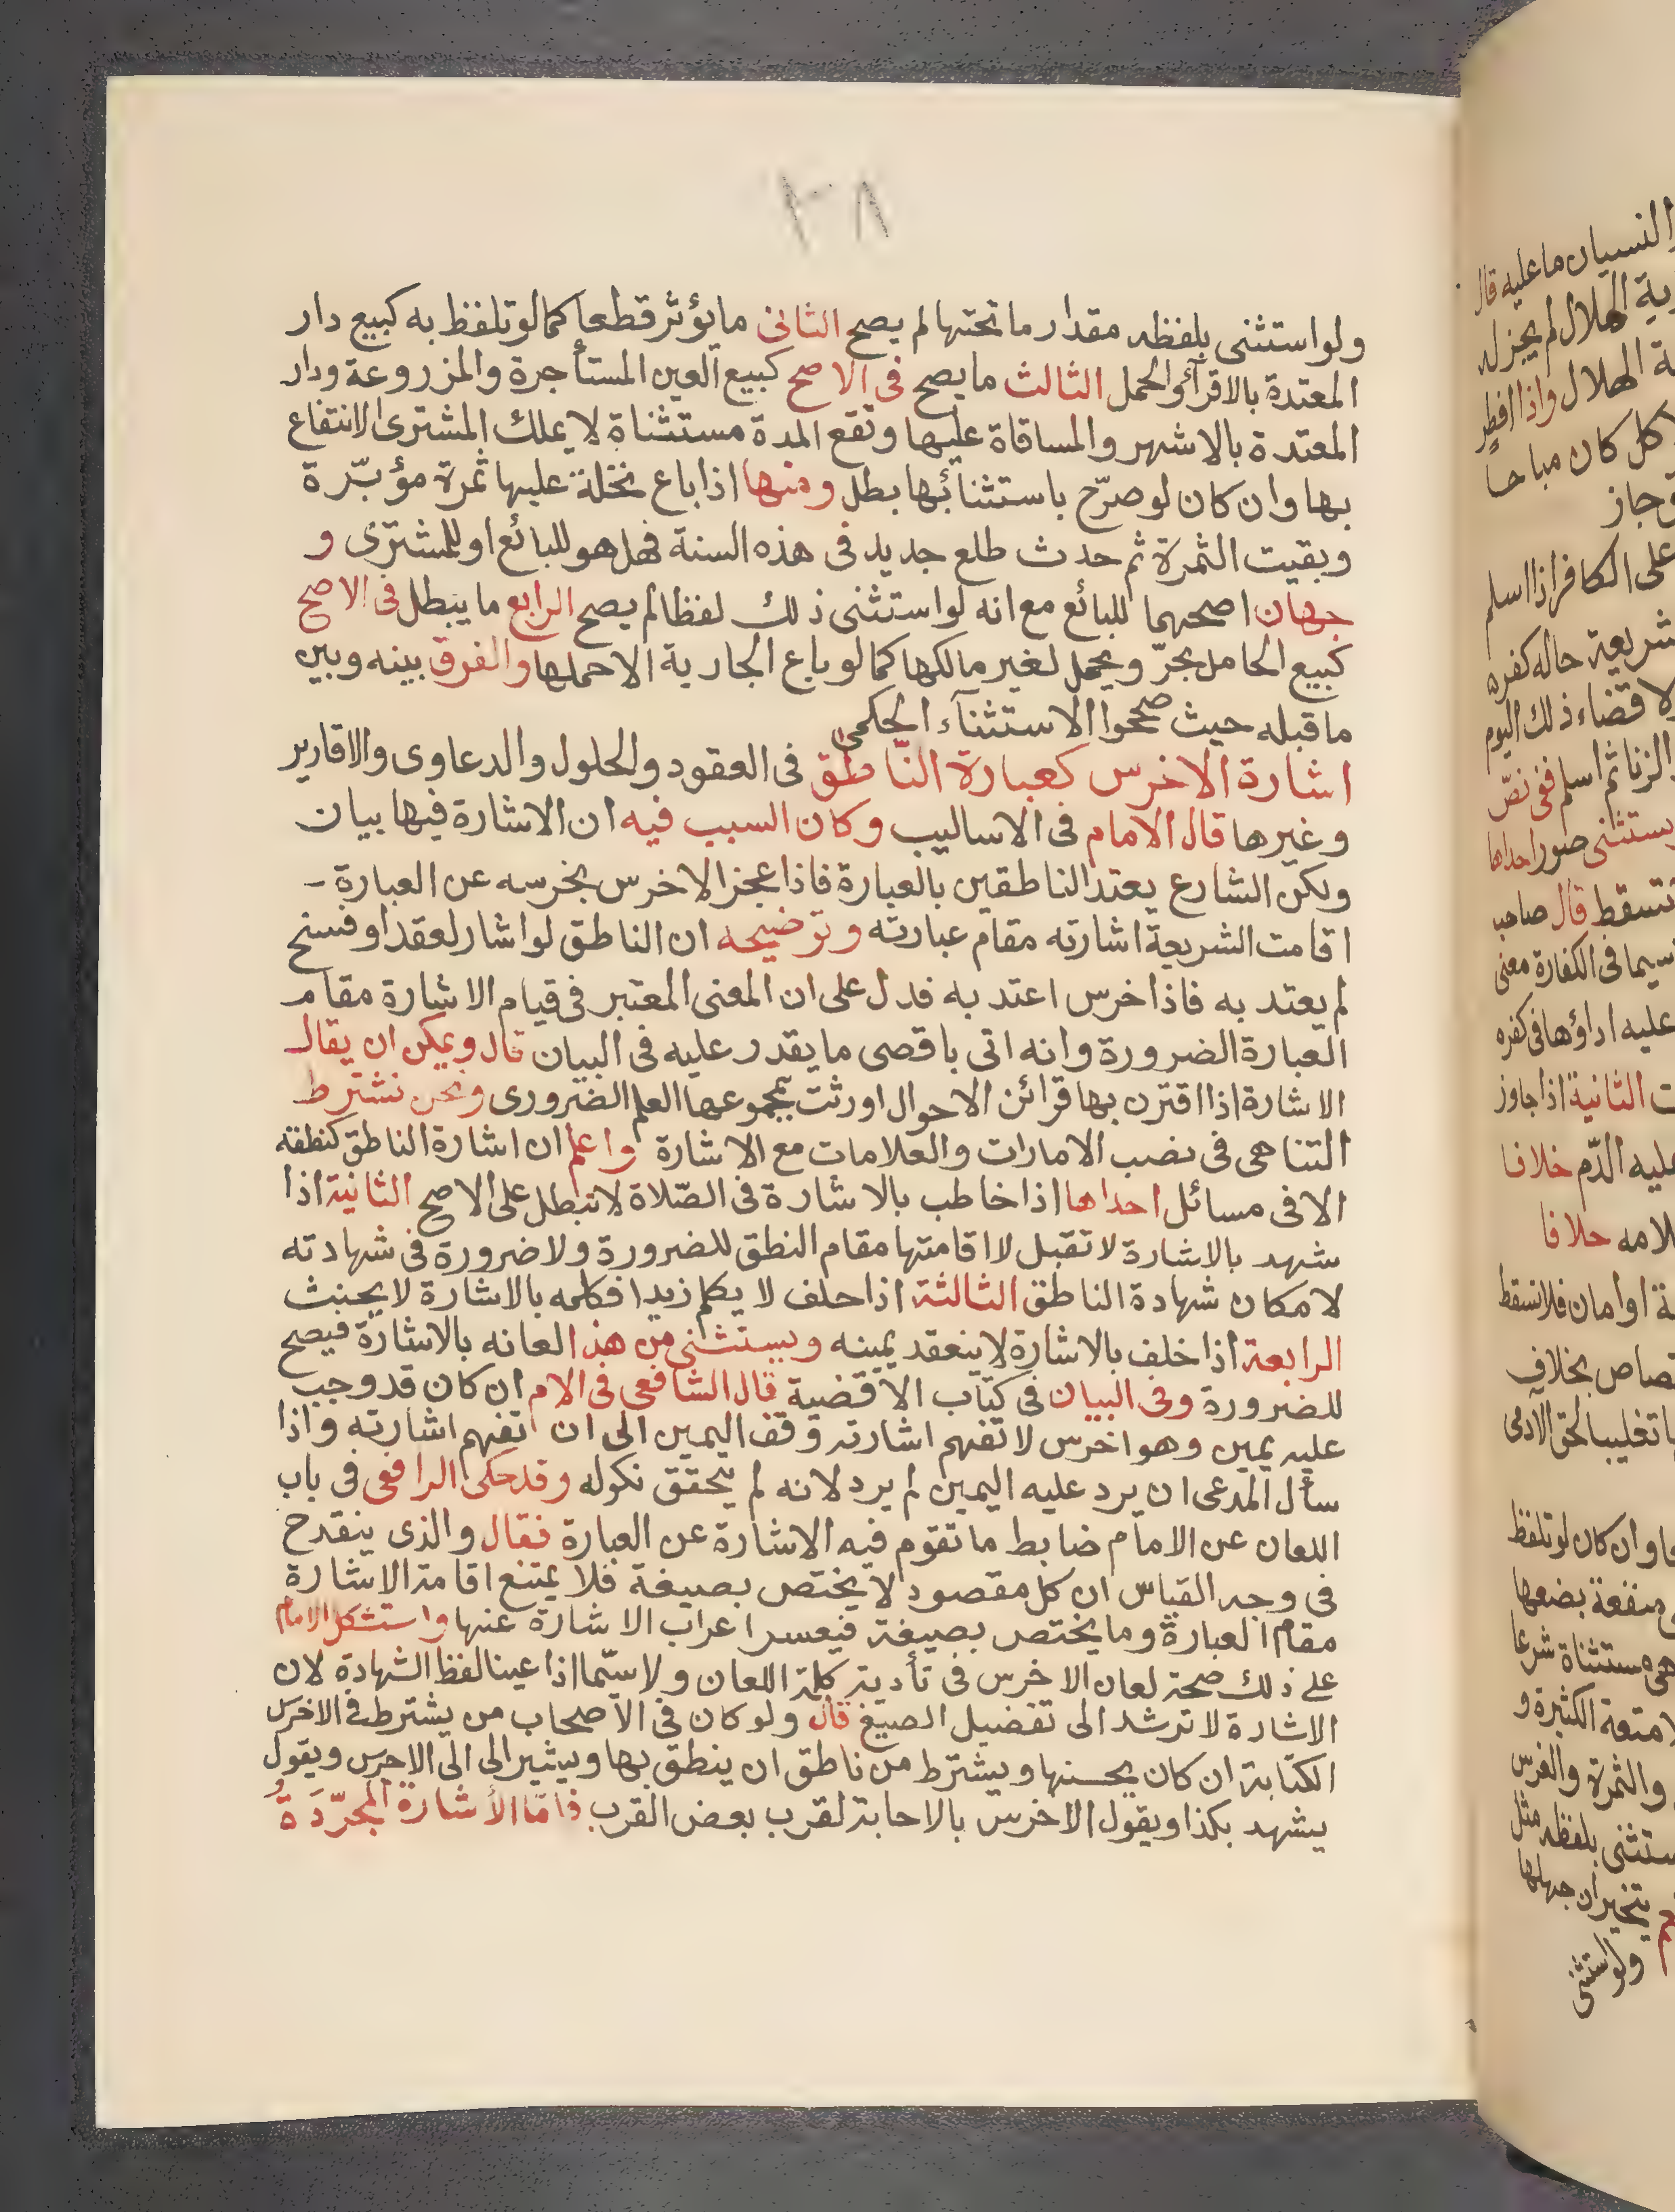 ٢٨
ولو استثنى بلفظه مقدار ما تحتها لم يصح الثاني ما يؤثر قطعا كما لو تلفظ به كبيع دار
المعتدة بالاقرآء والحمل الثالث ما يصح في الاصح كبيع العين المستأجرة والمزروعة ودار
المعتدة بالاشهر والمساقاة عليها وتقع المدة مستثناة لا يملك المشترى الانتفاع
بها وان كان لو صرّح باستثنائها بطل ومنها اذا باع نخلة عليها ثمرة مؤبّرة
وبقيت الثمرة ثم حدث طلع جديد في هذه السنة فهل هو للبائع او للمشترى و
جهان اصحهما للبائع مع انه لو استثنى ذلك لفظا لم يصح الرابع ما يبطل في الاصح
كبيع الحامل بحرّ ويحمل لغير مالكها كما لو باع الجارية الا حملها والفرق بينه وبين
ما قبله حيث صححوا الاستثنآء الحكمى
اشارة الاخرس كعبارة النّاطق في العقود والحلول والدعاوى والاقارير
وغيرها قال الامام في الاساليب وكان السبب فيه ان الاشارة فيها بيان
ولكن الشارع يعتد الناطقين بالعبارة فاذا عجز الاخرس بخرسه عن العبارة -
اقامت الشريعة اشارته مقام عبارته وتوضيحه ان الناطق لو اشار لعقد او فسخ
لم يعتد به فاذا خرس اعتد به فدل على ان المعنى المعتبر في قيام الاشارة مقام
العبارة الضرورة وانه اتى باقصى ما يقدر عليه في البيان قال ويمكن ان يقال
الاشارة اذا اقترن بها قرائن الاحوال اورثت بمجموعها العلم الضرورى ونحن نشترط
التناهى في نصب الامارات والعلامات مع الاشارة واعلم ان اشارة الناطق كنطقه
الا في مسائل احداها اذا خاطب بالاشارة في الصّلاة لا تبطل على الاصح الثانية اذا
شهد بالاشارة لا تقبل لا اقامتها مقام النطق للضرورة ولا ضرورة في شهادته
لا مكان شهادة الناطق الثالثة اذا حلف لا يكلم زيدا فكلمه بالاشارة لا يحنث
الرابعة اذا خلف بالاشارة لا ينعقد يمينه ويستثنى من هذا لعانه بالاشارة فيصح
للضرورة وفي البيان في كتاب الاقضية قال الشافعى في الام ان كان قد وجب
عليه يمين وهو اخرس لا تفهم اشارته وقف اليمين الى ان اتفهم اشارته واذا
سأل المدعى ان يرد عليه اليمين لم يرد لانه لم يتحقق نكوله وقد حكى الرافعى في باب
اللعان عن الامام ضابط ما تقوم فيه الاشارة عن العبارة فقال والذى ينقدح
في وجه القياس ان كل مقصود لا يختص بصيغة فلا يمتنع اقامة الاشارة
مقام العبارة وما يختص بصيغة فيعسر اعراب الاشارة عنها واستشكل الامام
على ذلك صحة لعان الاخرس في تأدية كلمة اللعان ولا سيّما اذا عينا لفظ الشهادة لان
الاشارة لا ترشد الى تفضيل الصيغ قال ولو كان في الاصحاب من يشترط في الاخرس
الكتابة ان كان يحسنها ويشترط من ناطق ان ينطق بها ويشير الى الى الاخرس ويقول
يشهد بكذا ويقول الاخرس بالاحابة لقرب بعض القرب فامّا الأشارة المجرّدَةُ
والنسيان ما عليه قال
الهلال لم يجز له
الهلال واذا افطر
كل كان مباحا
جاز
على الكافر اذا اسلم
حاله كفره
قضاء ذلك اليوم
الزنا ثم اسلم ففي نصّ
صور احداها
قال صاحب
في الكفارة معنى
عليه اداؤها في كفره
الثانية اذا جاوز
عليه الدّم خلافا
خلافا
او امان فلا تسقط
بخلاف
تغليبا لحق الآدمى
وان كان لو تلفظ
منفعة بضعها
مستثناة شرعا
الكثيرة و
والثمرة والفرس
بلفظه مثل
يتخير ان جهلها
ولو استثنى